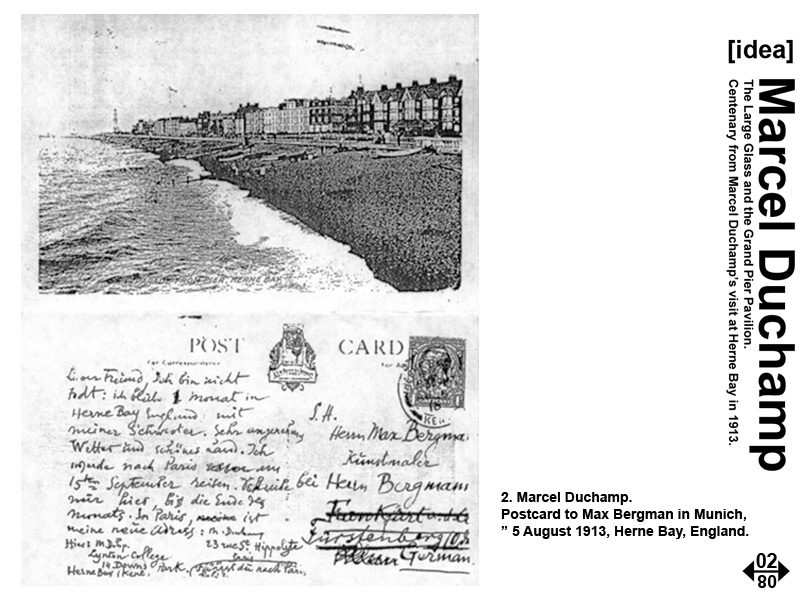 [idea]
Marcel Duchamp
The Large Glass and the Grand Pier Pavilion.
Centenary from Marcel Duchamp's visit at Herne Bay in 1913.
HERNE BAY
POST CARD
For Correspondence
Lieber Freund, Ich bin nicht
todt: ich bleibe 1 Monat in
Herne Bay England mit
meiner Schwester. Sehr angenehm
Wetter und schönes Land. Ich
werde nach Paris am
15ten September reisen. Schreibe
nur hier, bis die Ende des
monats. In Paris, meine ist
meine neue Adress: M. Duchamp
23 rue St. Hippolyte
Paris
Hier: M. Dchp.
Lynton College
14 Downs Park.
Herne Bay (Kent.
S.H.
Herrn Max Bergman
Kunstmaler
bei Herrn Bergmann
Fürstenberg
German
2. Marcel Duchamp.
Postcard to Max Bergman in Munich,
” 5 August 1913, Herne Bay, England.
02
80